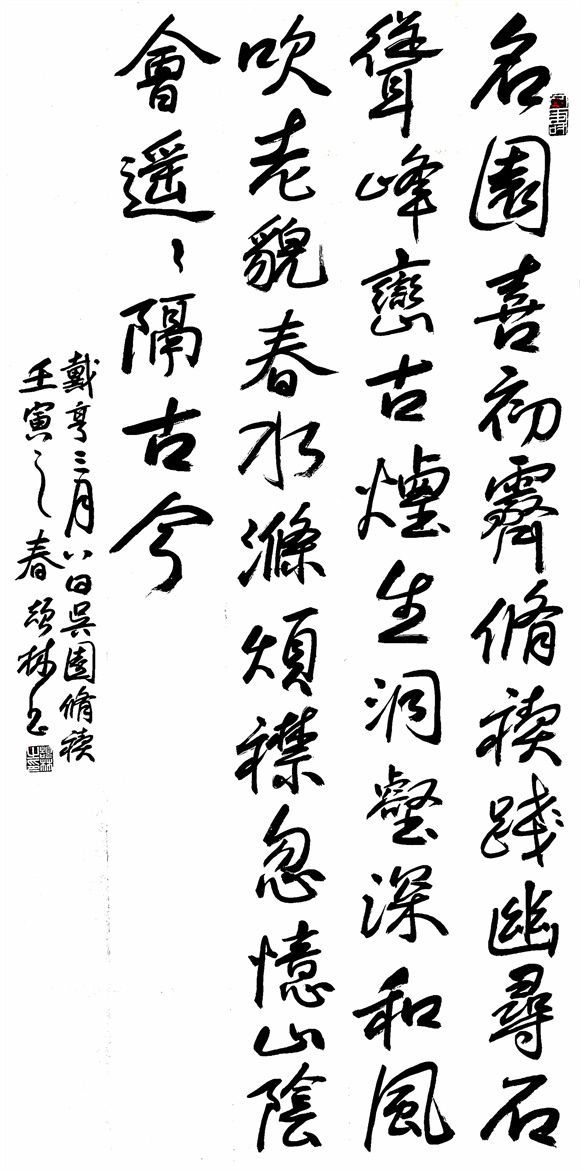 名園喜初霽脩禊踐幽尋石
聳峰巒古煙生洞壑深和風
吹老貌春水滌煩襟忽憶山陰
會遥〻隔古今
戴亨三月八日吳園脩禊
壬寅之春